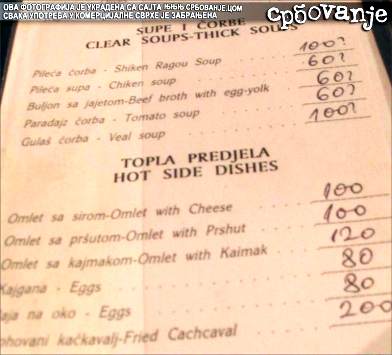 ОВА ФОТОГРАФИЈА ЈЕ УКРАДЕНА СА САЈТА ЊЊЊ.СРБОВАЊЕ.ЦОМ
СВАКА УПОТРЕБА У КОМЕРЦИЈАЛНЕ СВРХЕ ЈЕ ЗАБРАЊЕНА
србовање
SUPE I ČORBE
CLEAR SOUPS-THICK SOUPS
Pileća čorba - Shiken Ragou Soup 100?
Pileća supa - Chiken soup 60?
Buljon sa jajetom-Beef broth with egg-yolk 60?
Paradajz čorba - Tomato soup 60?
Gulaš čorba - Veal soup 100?
TOPLA PREDJELA
HOT SIDE DISHES
Omlet sa sirom-Omlet with Cheese 100
Omlet sa pršutom-Omlet with Prshut 100
Omlet sa kajmakom-Omlet with Kaimak 120
Kajgana - Eggs 80
Jaja na oko - Eggs 80
ohovani kačkavalj-Fried Cachcaval 200